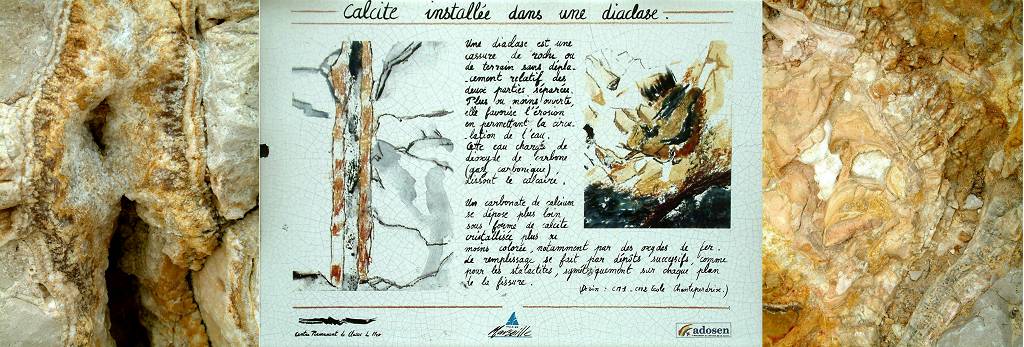 Calcite installée dans une diaclase.
Une diaclase est une
cassure de roche ou
de terrain sans dépla-
-cement relatif des
deux parties séparées.
Plus ou moins ouverte,
elle favorise l'érosion
en permettant la circu-
-lation de l'eau.
Cette eau chargée de
dioxyde de carbone
(gaz carbonique),
dissout le calcaire.
Un carbonate de calcium
se dépose plus loin
sous forme de calcite
cristallisée plus ou
moins colorée, notamment par des oxydes de fer.
Le remplissage se fait par dépôts successifs, comme
pour les stalactites, symétriquement sur chaque plan
de la fissure.
(Dessin : CM1 - CM2 Ecole Chanteperdrix.)
Centre Permanent de Classes de Mer
Marseille
adosen